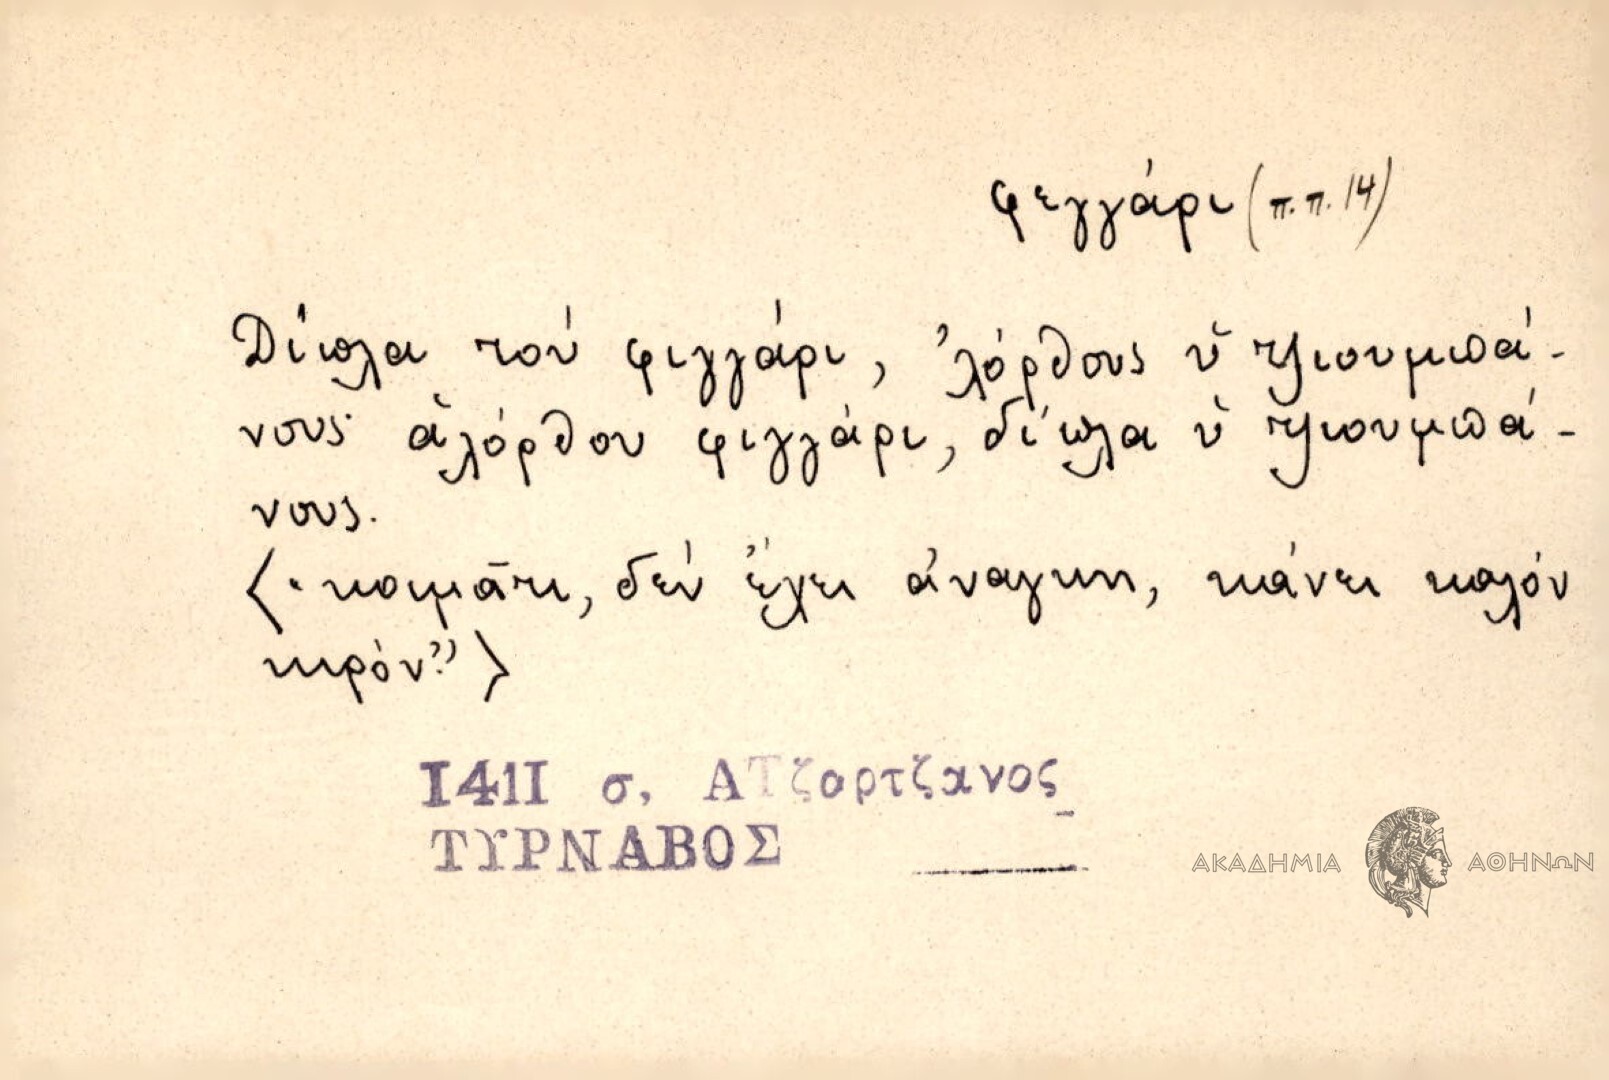 φεγγάρι (π.π. 14)
Δίπλα τοὺ φιγγάρι, ὀλόρθους ὕ τζιουμπά-
νους· ἀλόρθου φιγγάρι, δίπλα ὕ τζιουμπά-
νους.
<"κοιμᾶτι, δέν ἔχει ἀνάγκη, κάνει καλόν
κιρόν"·>
1411 σ. ΑΤζαρτζανος
ΤΥΡΝΑΒΟΣ
ΑΚΑΔΗΜΙΑ ΑΘΗΝΩΝ